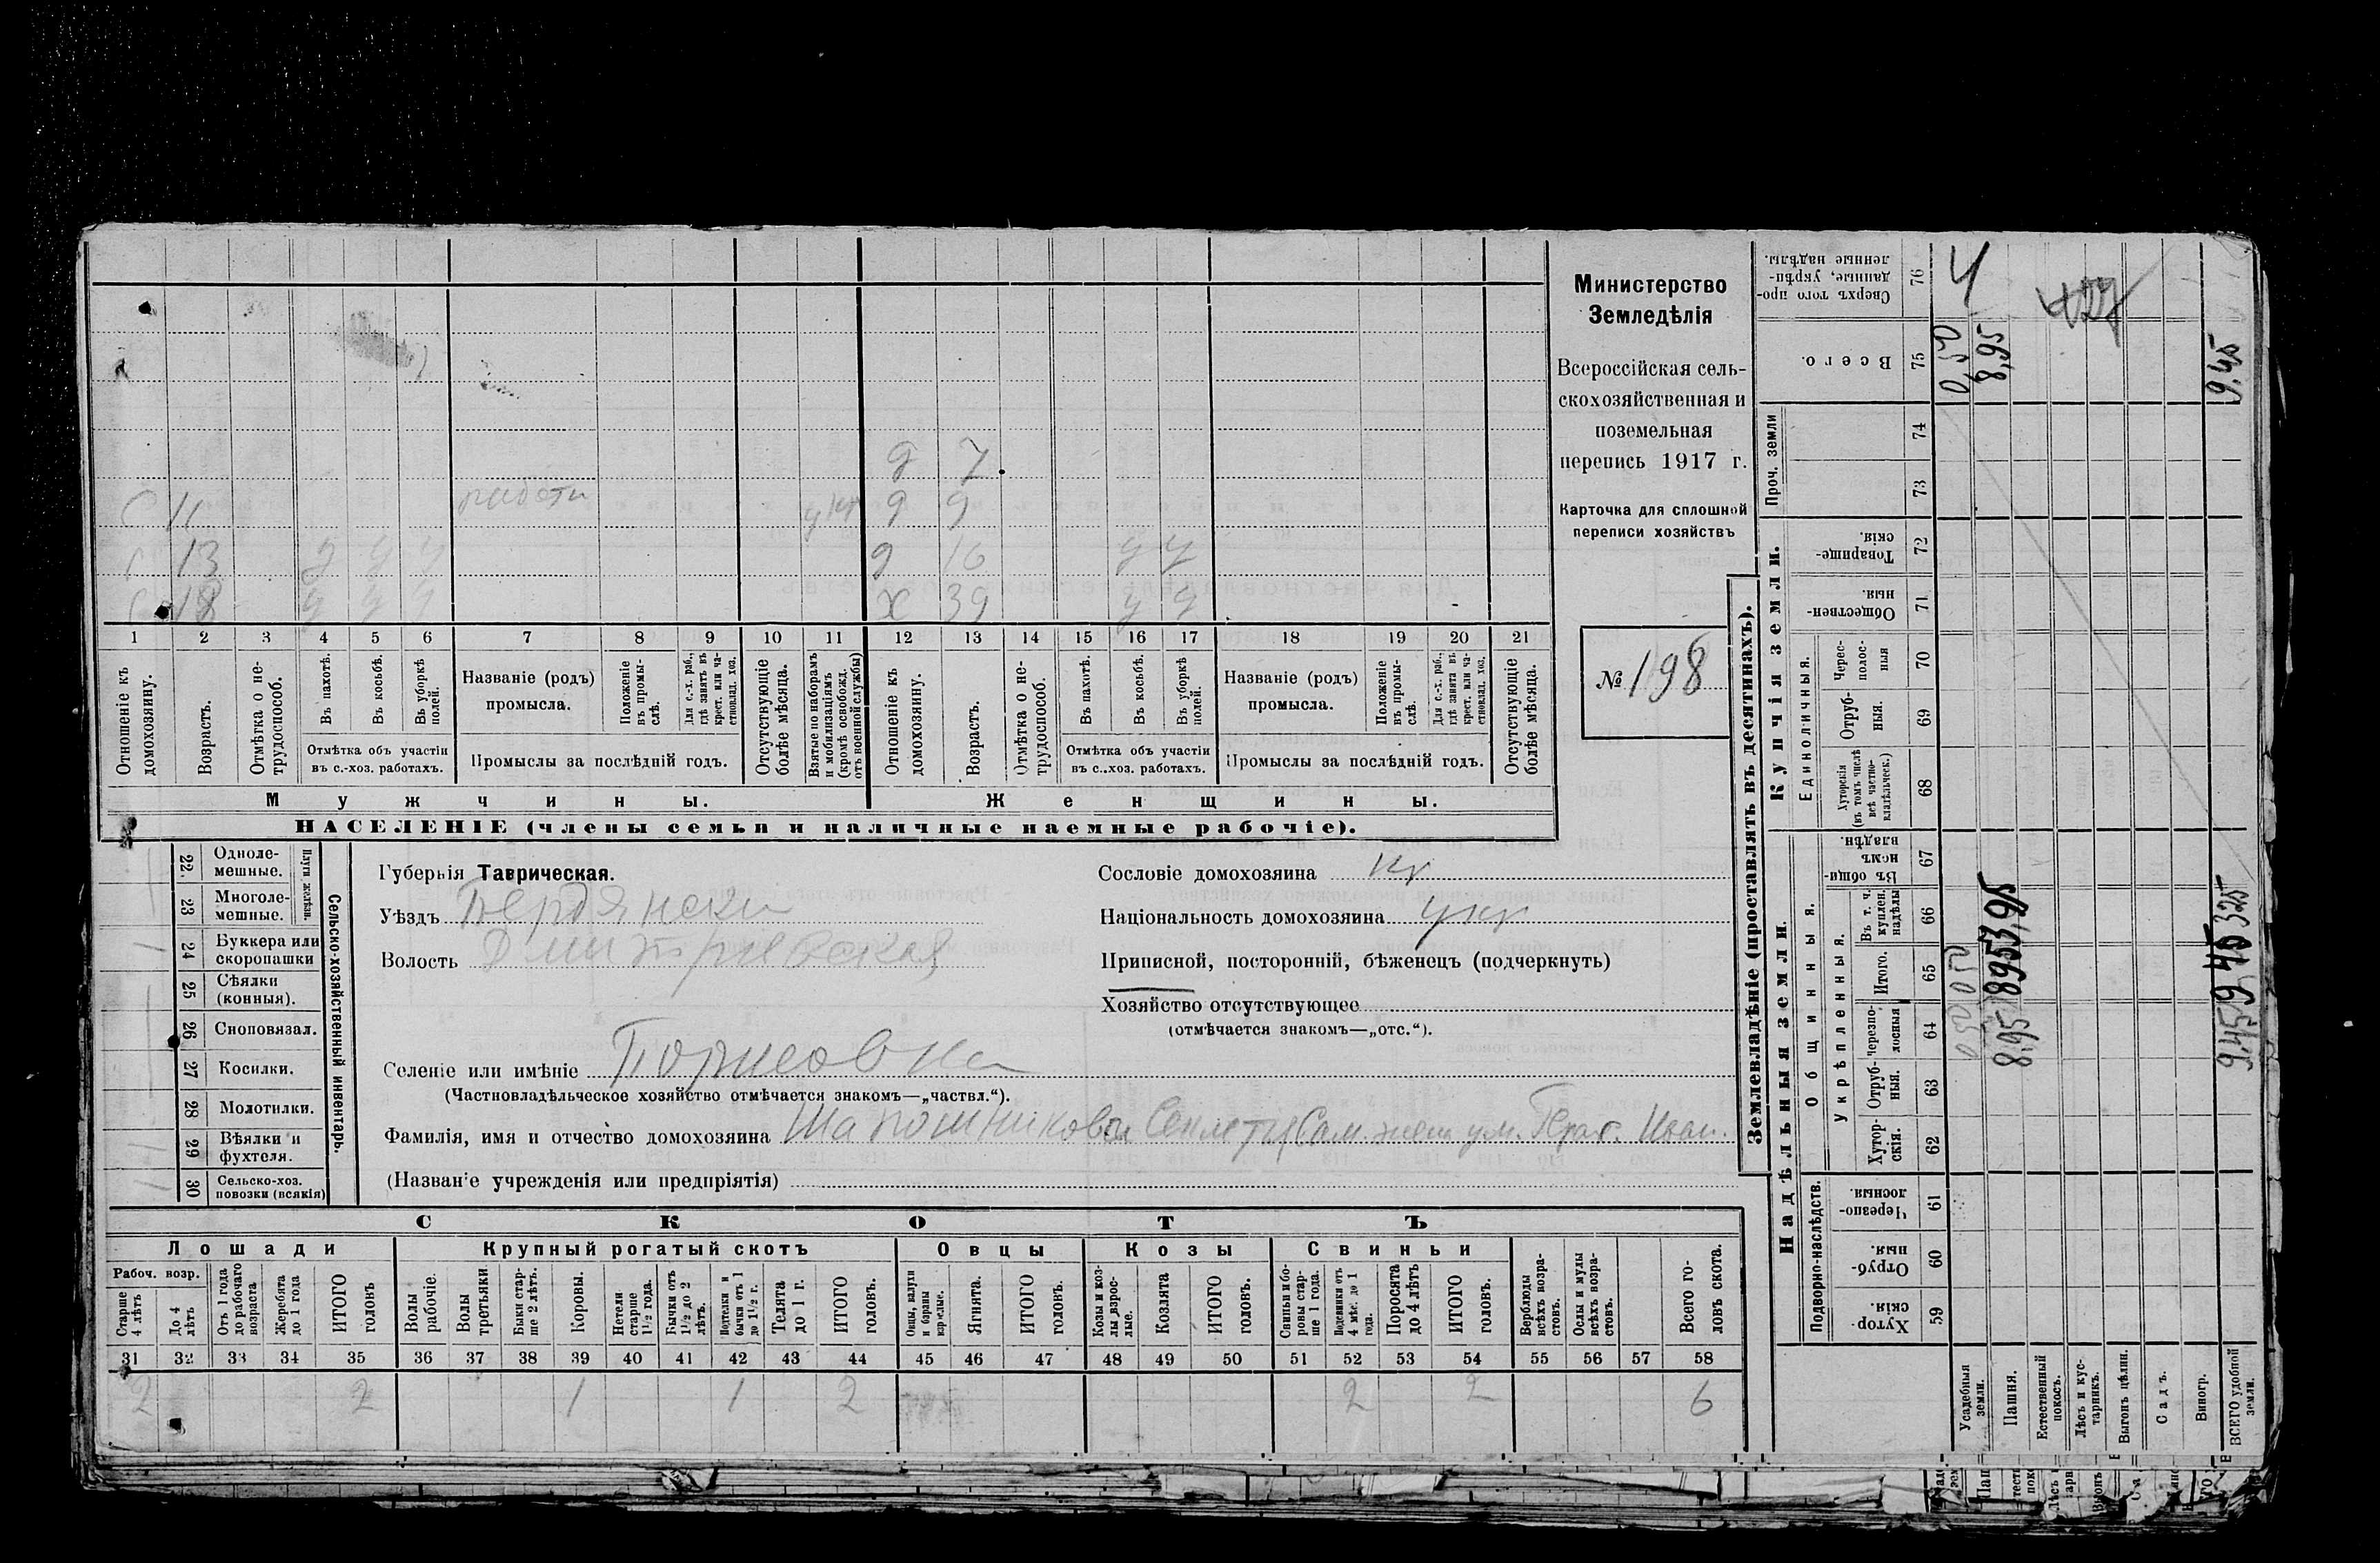 Министерство
Земледѣлія
Всероссійская сель-
скохозяйственная и
поземельная
перепись 1917 г.
Карточка для сплошной
переписи хозяйствъ
№ 198
д 7
С 11 работн укр д 9
С 13 у у у д 16 у у
С 18 у у у х 39 у у
1 2 3 4 5 6 7 8 9 10 11 12 13 14 15 16 17 18 19 20 21
Отношеніе къ домохозяину.
Возрастъ.
Отмѣтка о не-трудоспособ.
Въ пахотѣ.
Въ косьбѣ.
Въ уборкѣ полей.
Отмѣтка объ участіи
въ с.-хоз. работахъ.
Названіе (родъ)
промысла.
Положеніе въ промы-слѣ.
Для с.-х. раб., гдѣ занятъ въ крест. или ча-стновлад. хоз.
Промыслы за послѣдній годъ.
Отсутствующіе болѣе мѣсяца.
Взятые по наборамъ и мобилизаціямъ (кромѣ освобожд. отъ военной службы)
Отношеніе къ домохозяину.
Возрастъ.
Отмѣтка о не-трудоспособ.
Въ пахотѣ.
Въ косьбѣ.
Въ уборкѣ полей.
Отмѣтка объ участіи
въ с.-хоз. работахъ.
Названіе (родъ)
промысла.
Положеніе въ промы-слѣ.
Для с.-х. раб., гдѣ занята въ крест. или ча-стновлад. хоз.
Промыслы за послѣдній годъ.
Отсутствующіе болѣе мѣсяца.
Мужчины. Женщины.
НАСЕЛЕНІЕ (члены семьи и наличные наемные рабочіе).
Сельско-хозяйственный инвентарь.
Плуги желѣзн.
22 Одноле-мешные.
23 Многоле-мешные.
24 Буккера или скоропашки
25 Сѣялки (конныя).
26 Сноповязал.
27 Косилки.
28 Молотилки.
29 Вѣялки и фухтеля.
30 Сельско-хоз. повозки (всякія)
Губернія Таврическая.
Уѣздъ Бердянски
Волость Дмитриевская
Сословіе домохозяина кр
Національность домохозяина укр
Приписной, посторонній, бѣженецъ (подчеркнуть)
Хозяйство отсутствующее
(отмѣчается знакомъ—„отс.“).
Селеніе или имѣніе
(Частновладѣльческое хозяйство отмѣчается знакомъ—„частвл.“).
Фамилія, имя и отчество домохозяина Шапошникова жен ум. Герас. Иван.
(Названіе учрежденія или предпріятія)
СКОТЪ
Лошади Крупный рогатый скотъ Овцы Козы Свиньи
Рабоч. возр.
Старше 4 лѣтъ
До 4 лѣтъ
Отъ 1 года до рабочаго возраста
Жеребята до 1 года
ИТОГО головъ
Волы рабочіе.
Волы третьяки.
Быки стар-ше 2 лѣтъ.
Коровы.
Нетели старше 1½ года.
Бычки отъ 1½ до 2 лѣтъ.
Подтелки и бычки отъ 1 до 1½ г.
Телята до 1 г.
ИТОГО головъ.
Овцы, валухи и бараны взрослые.
Ягнята.
ИТОГО головъ.
Козы и коз-лы взрос-лые.
Козлята
ИТОГО головъ.
Свиньи и бо-ровы стар-ше 1 года.
Подсвинки отъ 4 мѣс. до 1 года.
Поросята до 4 лѣтъ
ИТОГО головъ.
Верблюды всѣхъ возра-стовъ.
Ослы и мулы всѣхъ возра-стовъ.
Всего го-ловъ скота.
31 32 33 34 35 36 37 38 39 40 41 42 43 44 45 46 47 48 49 50 51 52 53 54 55 56 57 58
2 2 1 1 2 2 2 6
Землевладѣніе (проставлять въ десятинахъ).
Надѣльныя земли.
Купчія земли.
Проч. земли
Подворно-наслѣдств.
Общинныя.
Укрѣпленныя.
Единоличныя.
Сверхъ того про-данные, укрѣп-ленные надѣлы. 76
Всего. 75
74
73
Товарище-скія. 72
Обществен-ныя. 71
Черес-полос-ныя 70
Отруб-ныя. 69
Хуторскія (въ томъ числѣ всѣ частно-владѣльческ.) 68
Въ общи-номъ владѣн. 67
Въ т. ч. куплен. надѣлы 66
Итого. 65
Черезпо-лосныя 64
Отруб-ныя. 63
Хутор-скія. 62
Черезпо-лосныя. 61
Отруб-ныя. 60
Хутор-скія. 59
Усадебныя земли.
Пашня.
Естественный покосъ.
Лѣсъ и кус-тарникъ.
Выгонъ цѣлин.
Садъ.
Виногр.
ВСЕГО удобной земли.
4
427
0,50
8,95
9.45
0,50 0,50
8,95 8953,95
9,45 9,45 325